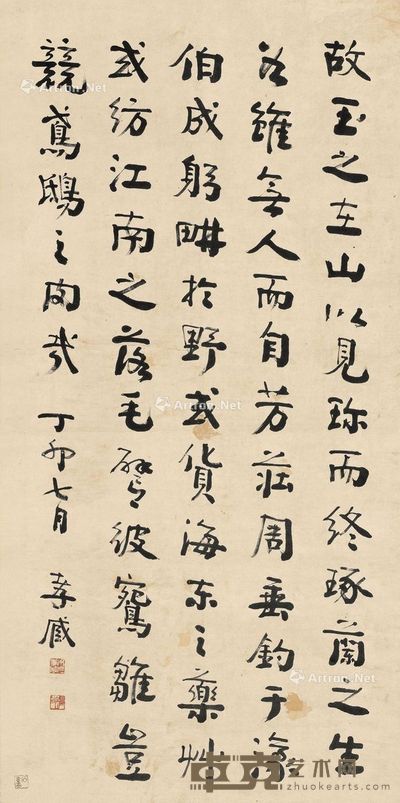 故玉之在山以見珎而終琢蘭之生
谷雖無人而自芳莊周垂釣于濠
伯成躬畊於野或貨海東之藥艸
或紡江南之落毛譬彼鵷雛豈
競鳶鴟之肉哉 丁卯七月 孝臧
Artron.Net
Artron.Net
Artron.Net
Artron.Net
卓克艺术网
zhuokearts.com